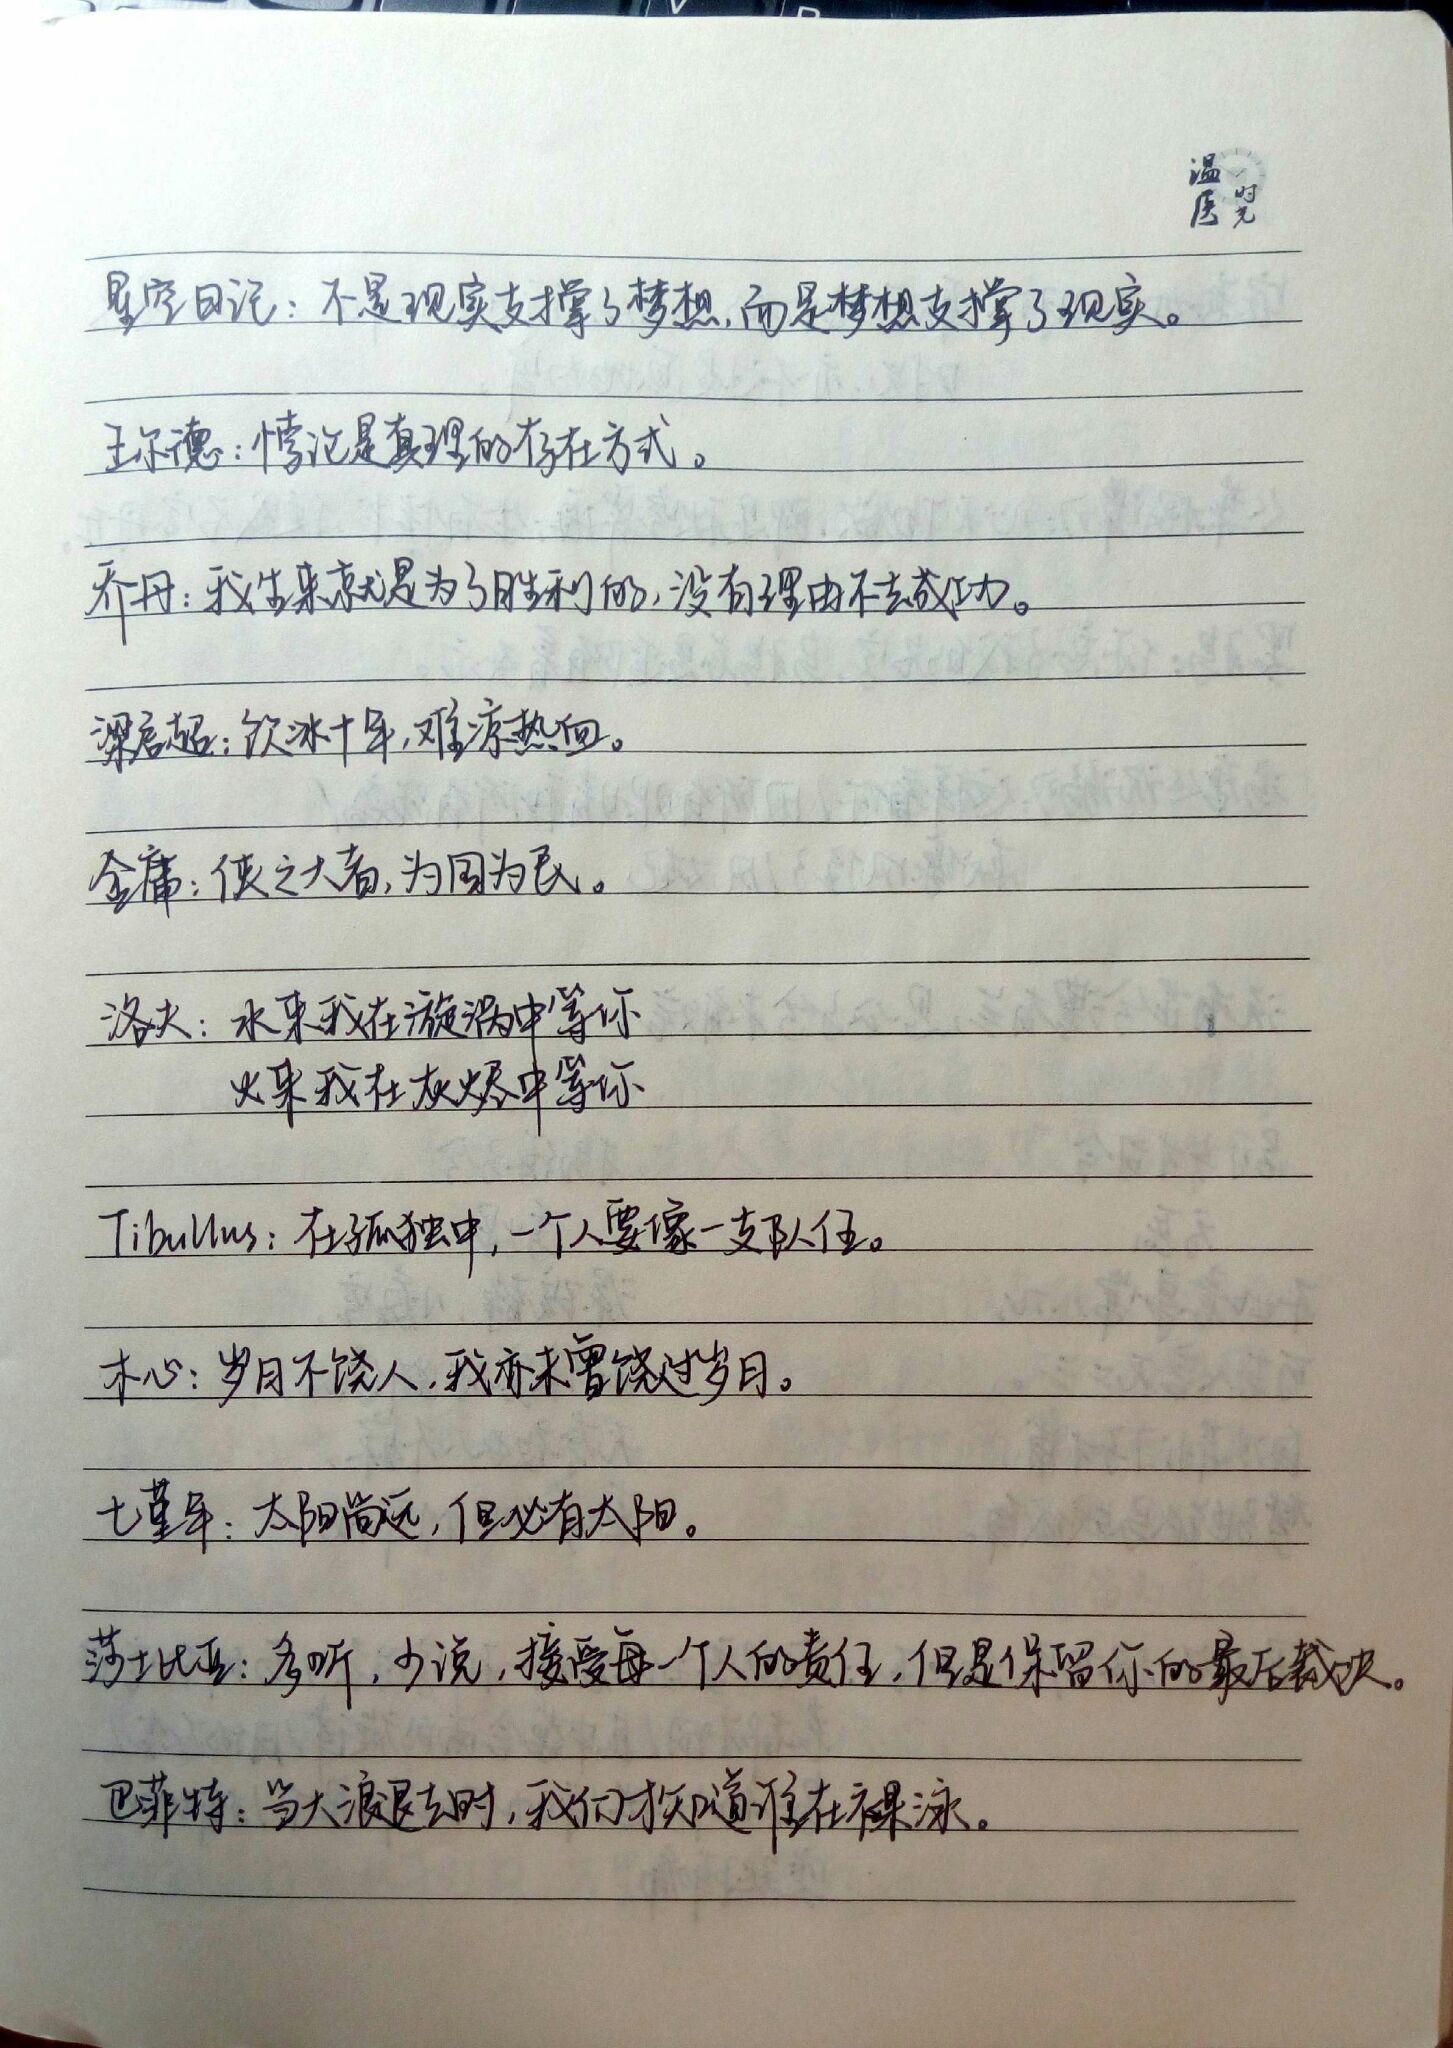 温医时光
星空日记：不是现实支撑了梦想，而是梦想支撑了现实。
王尔德：悖论是真理的存在方式。
乔丹：我生来就是为了胜利的，没有理由不去成功。
梁启超：饮冰十年，难凉热血。
金庸：侠之大者，为国为民。
洛夫：水来我在漩涡中等你
火来我在灰烬中等你
Tibullus：在孤独中，一个人要像一支队伍。
木心：岁月不饶人，我亦未曾饶过岁月。
七堇年：太阳尚远，但必有太阳。
莎士比亚：多听，少说，接受每一个人的责任，但是保留你的最后裁决。
巴菲特：当大浪退去时，我们才知道谁在裸泳。